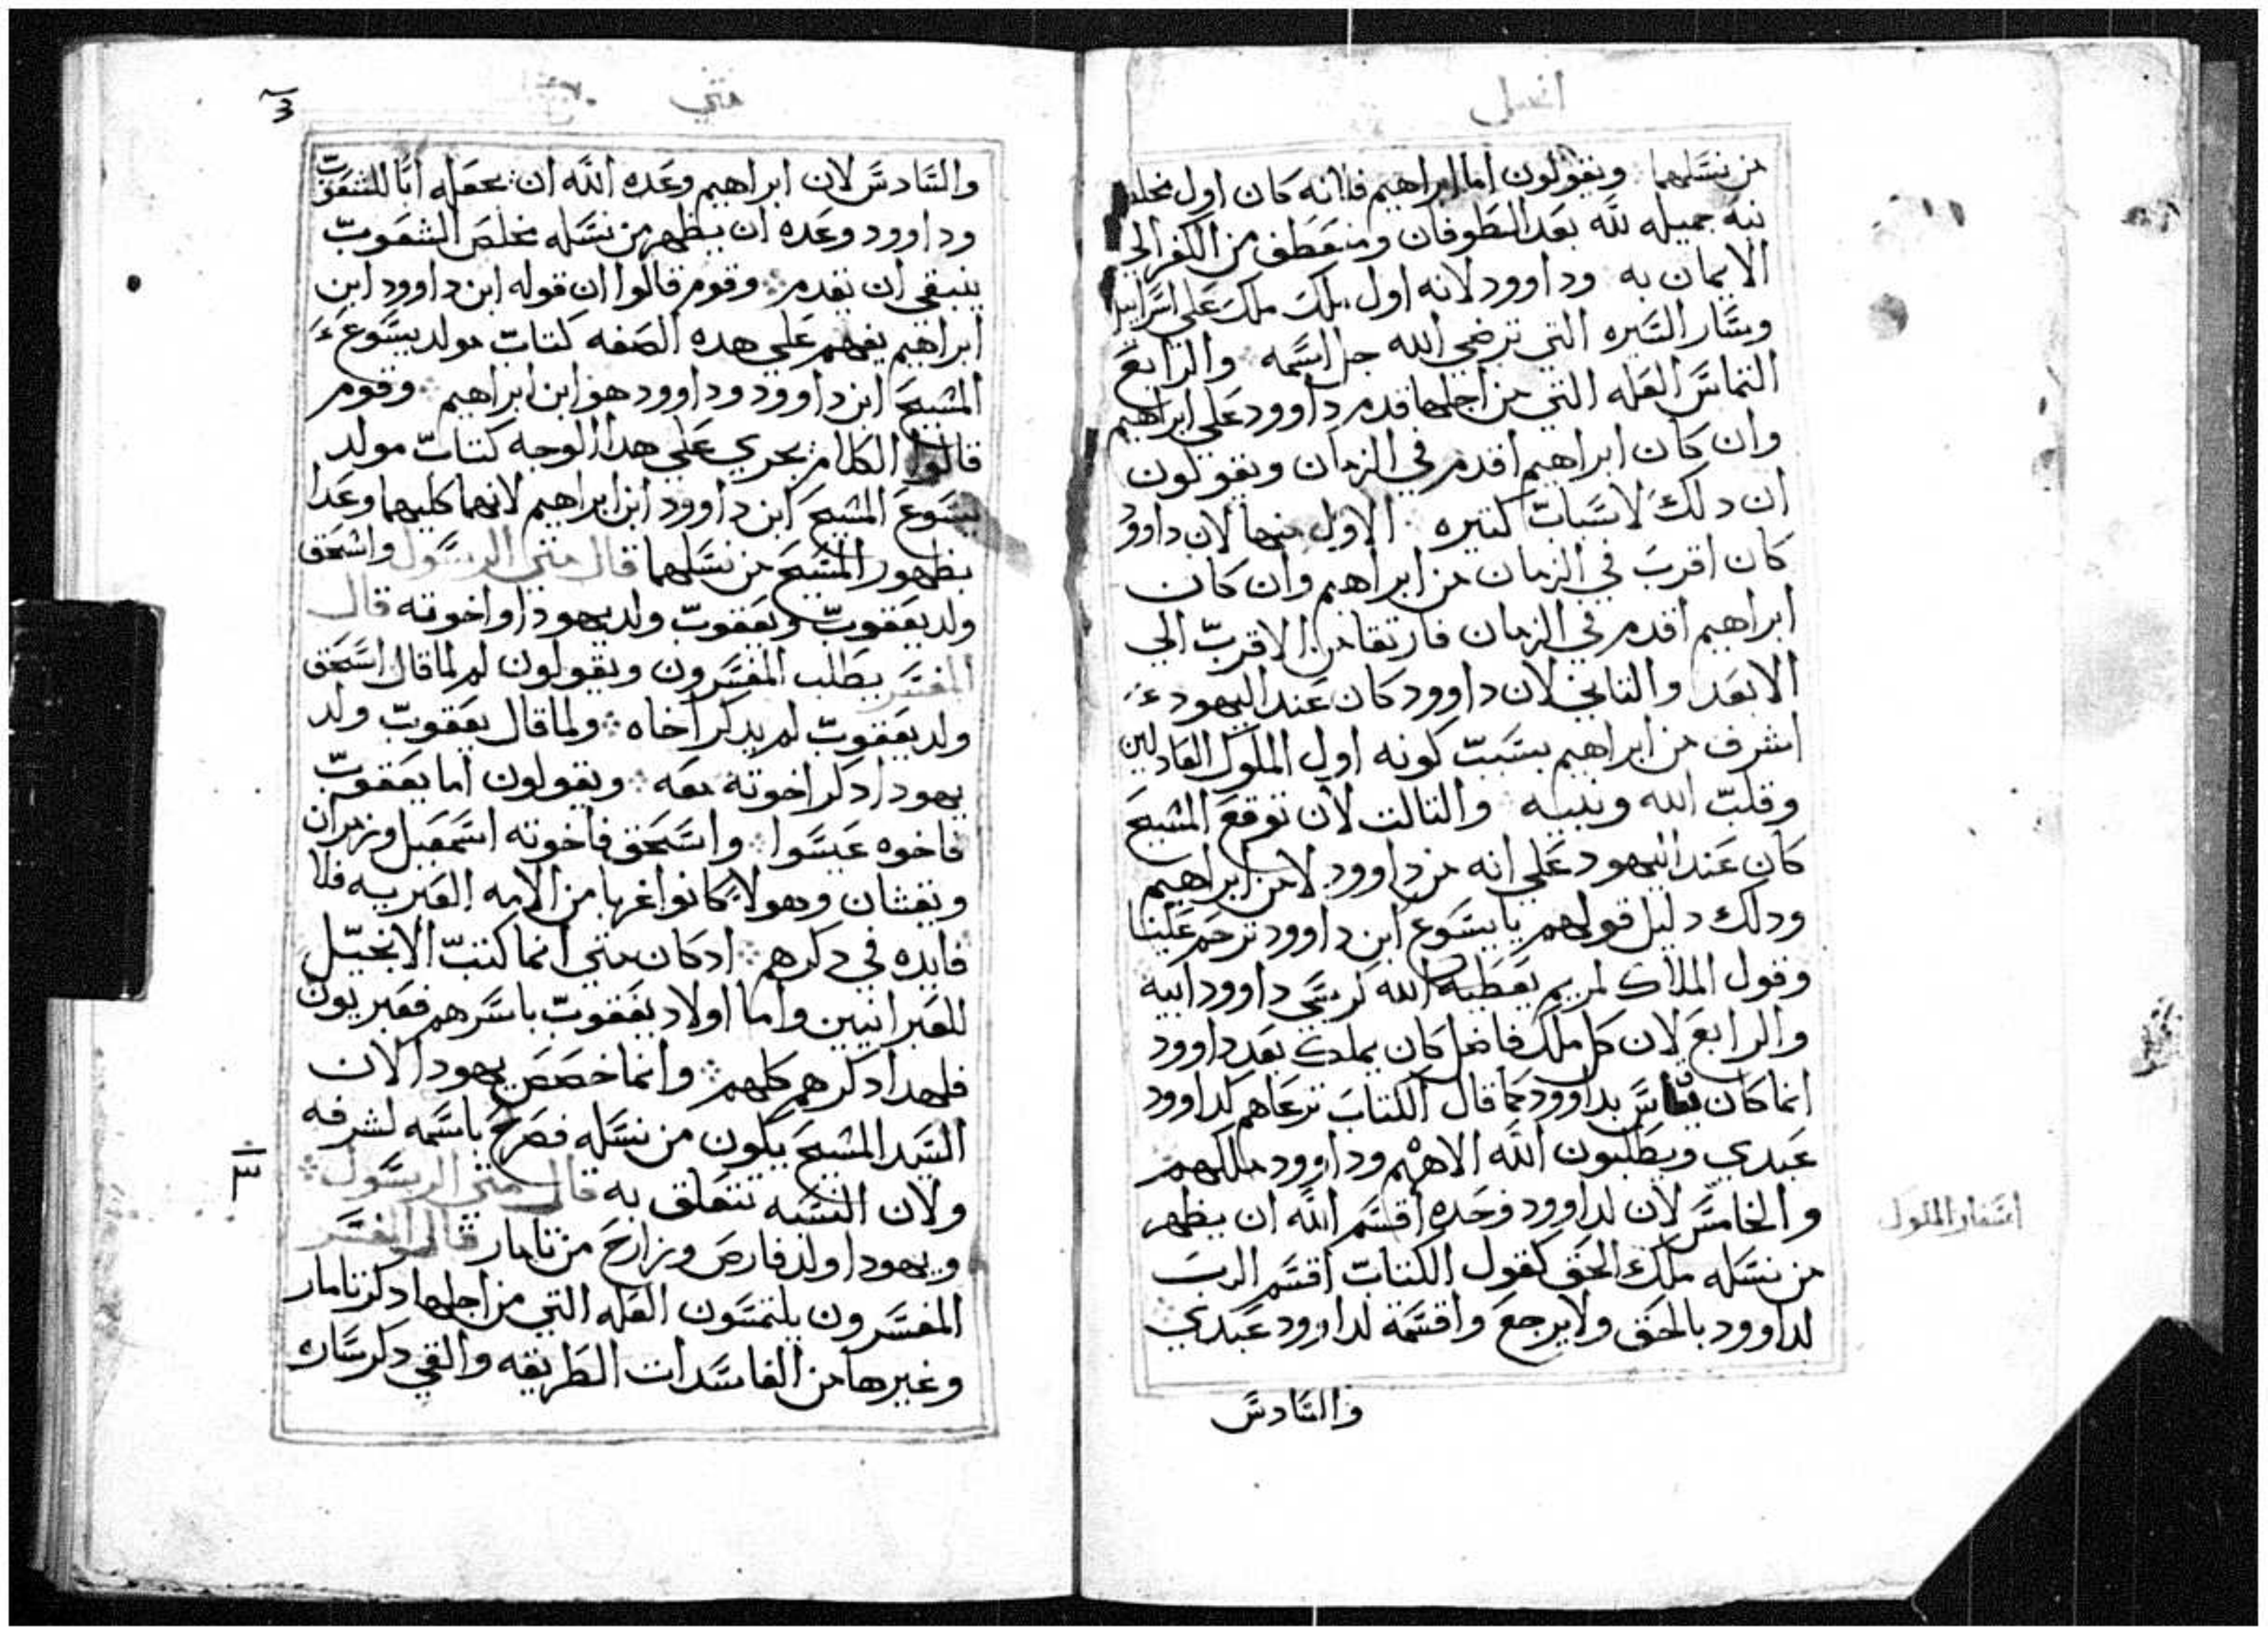 انجيل
من نسلهما ويقولون اما ابراهيم فانه كان اول مخلص
نيه جميله لله بعد الطوفان ومنعطف من الكفر الي
الايمان به وداوود لانه اول ملك ملك علي اسراييل
وسار السيره التي ترضي الله جل اسمه والرابع
التماس العله التي من اجلها قدم داوود علي ابراهيم
وان كان ابراهيم اقدم في الزمان ويقولون
ان دلك لاسباب كتيره الاول منها لان داوود
كان اقرب في الزمان من ابراهيم وان كان
ابراهيم اقدم في الزمان فارتقا من الاقرب الي
الابعد والتاني لان داوود كان عند اليهود
اشرف من ابراهيم بسبب كونه اول الملوك العادلين
وقلب الله ونبيه والتالت لان توقع المسيح
كان عند اليهود علي انه من داوود لا من ابراهيم
ودلك دليل قولهم يا يسوع ابن داوود ترحم علينا
وقول الملاك لمريم يعطيه الله كرسي داوود ابيه
والرابع لان كل ملك فاضل كان يملك بعد داوود
انما كان يقاس بداوود كما قال الكتاب نرعاهم لداوود
عبدي ويطلبون الله الاههم وداوود ملكهم
والخامس لان لداوود وحده اقسم الله ان يظهر
من نسله ملك الحق كقول الكتاب اقسم الرب
لداوود بالحق ولا يرجع واقسمة لداوود عبدي
والسادس
اسفار الملوك
متي
والسادس لان ابراهيم وعده الله ان يجعله ابا للشعوب
وداوود وعده ان يظهر من نسله مخلص الشعوب
ينبغي ان تقدم وقوم قالوا ان قوله ابن داوود ابن
ابراهيم يفهم علي هده الصفه كتاب مولد يسوع
المسيح ابن داوود وداوود هو ابن ابراهيم وقوم
قالوا الكلام يجري علي هدا الوجه كتاب مولد
يسوع المسيح ابن داوود ابن ابراهيم لانهما كليهما وعدا
بظهور المسيح من نسلهما قال متي الرسول واسحق
ولد يعقوب ويعقوب ولد يهودا واخوته قال
المفسر يطلب المفسرون ويقولون لم لما قال اسحق
ولد يعقوب لم يدكر اخاه ولما قال يعقوب ولد
يهودا دكر اخوته معه ويقولون اما يعقوب
فاخوه عيسوا واسحق فاخوته اسمعيل وزمران
ويقشان وهولا كانوا غربا من الامه العبريه فلا
فايده في دكرهم ادكان متي انما كتب الانجيل
للعبرانيين واما اولاد يعقوب باسرهم فعبريون
فلهدا دكرهم كلهم وانما خصص يهودا لان
السيد المسيح يكون من نسله فصرح باسمه لشرفه
ولان النسبه تتعلق به قال متي الرسول
ويهودا اولد فارص وزارح من تامار قال المفسر
المفسرون يلتمسون العله التي من اجلها دكر تامار
وغيرها من الفاسدات الطريقه والقي دكر ساره